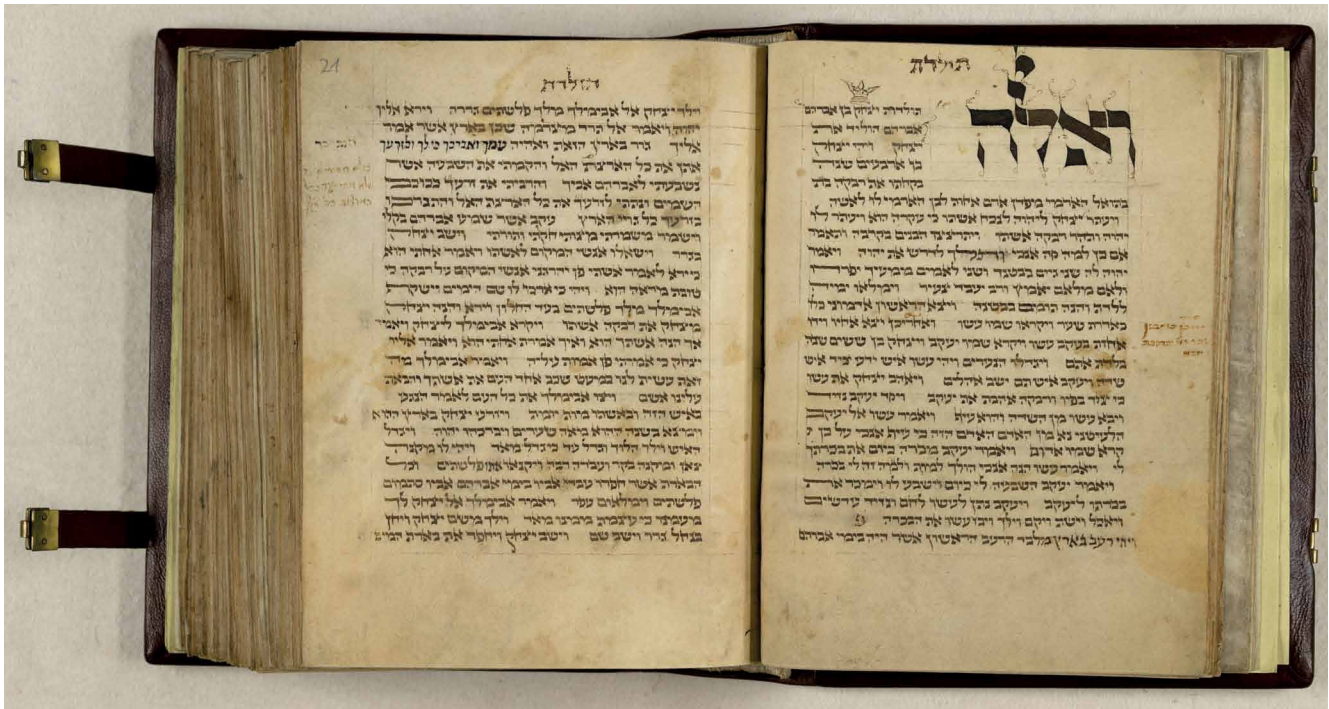 תולדת
ואלה
תולדת יצחק בן אברהם
אברהם הוליד את
יצחק ויהי יצחק
בן ארבעים שנה
בקחתו את רבקה בת
בתואל הארמי מפדן ארם אחות לבן הארמי לו לאשה
ויעתר יצחק ליהוה לנכח אשתו כי עקרה הוא ויעתר לו
יהוה ותהר רבקה אשתו ויתרצצו הבנים בקרבה ותאמר
אם כן למה זה אנכי ותלך לדרש את יהוה ויאמר
יהוה לה שני גיים בבטנך ושני לאמים ממעיך יפרדו
ולאם מלאם יאמץ ורב יעבד צעיר וימלאו ימיה
ללדת והנה תומם בבטנה ויצא הראשון אדמוני כלו
כאדרת שער ויקראו שמו עשו ואחרי כן יצא אחיו וידו
אחזת בעקב עשו ויקרא שמו יעקב ויצחק בן ששים שנה
בלדת אתם ויגדלו הנערים ויהי עשו איש ידע ציד איש
שדה ויעקב איש תם ישב אהלים ויאהב יצחק את עשו
כי ציד בפיו ורבקה אהבת את יעקב ויזד יעקב נזיד
ויבא עשו מן השדה והוא עיף ויאמר עשו אל יעקב
הלעיטני נא מן האדם האדם הזה כי עיף אנכי על כן
קרא שמו אדום ויאמר יעקב מכרה כיום את בכרתך
לי ויאמר עשו הנה אנכי הולך למות ולמה זה לי בכרה
ויאמר יעקב השבעה לי כיום וישבע לו וימכר את
בכרתו ליעקב ויעקב נתן לעשו לחם ונזיד עדשים
ויאכל וישת ויקם וילך ויבז עשו את הבכרה פ
ויהי רעב בארץ מלבד הרעב הראשון אשר היה בימי אברהם
21
תולדת
וילך יצחק אל אבימלך מלך פלשתים גררה וירא אליו
יהוה ויאמר אל תרד מצרימה שכן בארץ אשר אמר
אליך גור בארץ הזאת ואהיה עמך ואברכך כי לך ולזרעך
אתן את כל הארצת האל והקמתי את השבעה אשר
נשבעתי לאברהם אביך והרביתי את זרעך ככוכבי
השמים ונתתי לזרעך את כל הארצת האל והתברכו
בזרעך כל גויי הארץ עקב אשר שמע אברהם בקלי
וישמר משמרתי מצותי חקתי ותורתי וישב יצחק
בגרר וישאלו אנשי המקום לאשתו ויאמר אחתי הוא
כי ירא לאמר אשתי פן יהרגני אנשי המקום על רבקה כי
טובת מראה הוא ויהי כי ארכו לו שם הימים וישקף
אבימלך מלך פלשתים בעד החלון וירא והנה יצחק
מצחק את רבקה אשתו ויקרא אבימלך ליצחק ויאמר
אך הנה אשתך הוא ואיך אמרת אחתי הוא ויאמר אליו
יצחק כי אמרתי פן אמות עליה ויאמר אבימלך מה
זאת עשית לנו כמעט שכב אחד העם את אשתך והבאת
עלינו אשם ויצו אבימלך את כל העם לאמר הנגע
באיש הזה ובאשתו מות יומת ויזרע יצחק בארץ ההוא
וימצא בשנה ההוא מאה שערים ויברכהו יהוה ויגדל
האיש וילך הלוך וגדל עד כי גדל מאד ויהי לו מקנה
צאן ומקנה בקר ועבדה רבה ויקנאו אתו פלשתים וכל
הבארת אשר חפרו עבדי אביו בימי אברהם אביו סתמום
פלשתים וימלאום עפר ויאמר אבימלך אל יצחק לך
מעמנו כי עצמת ממנו מאד וילך משם יצחק ויחן
בנחל גרר וישב שם וישב יצחק ויחפר את בארת המים